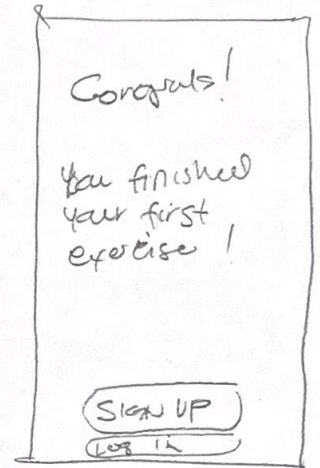 Congrats!
You finished
your first
exercise!
SIGN UP
LOG IN